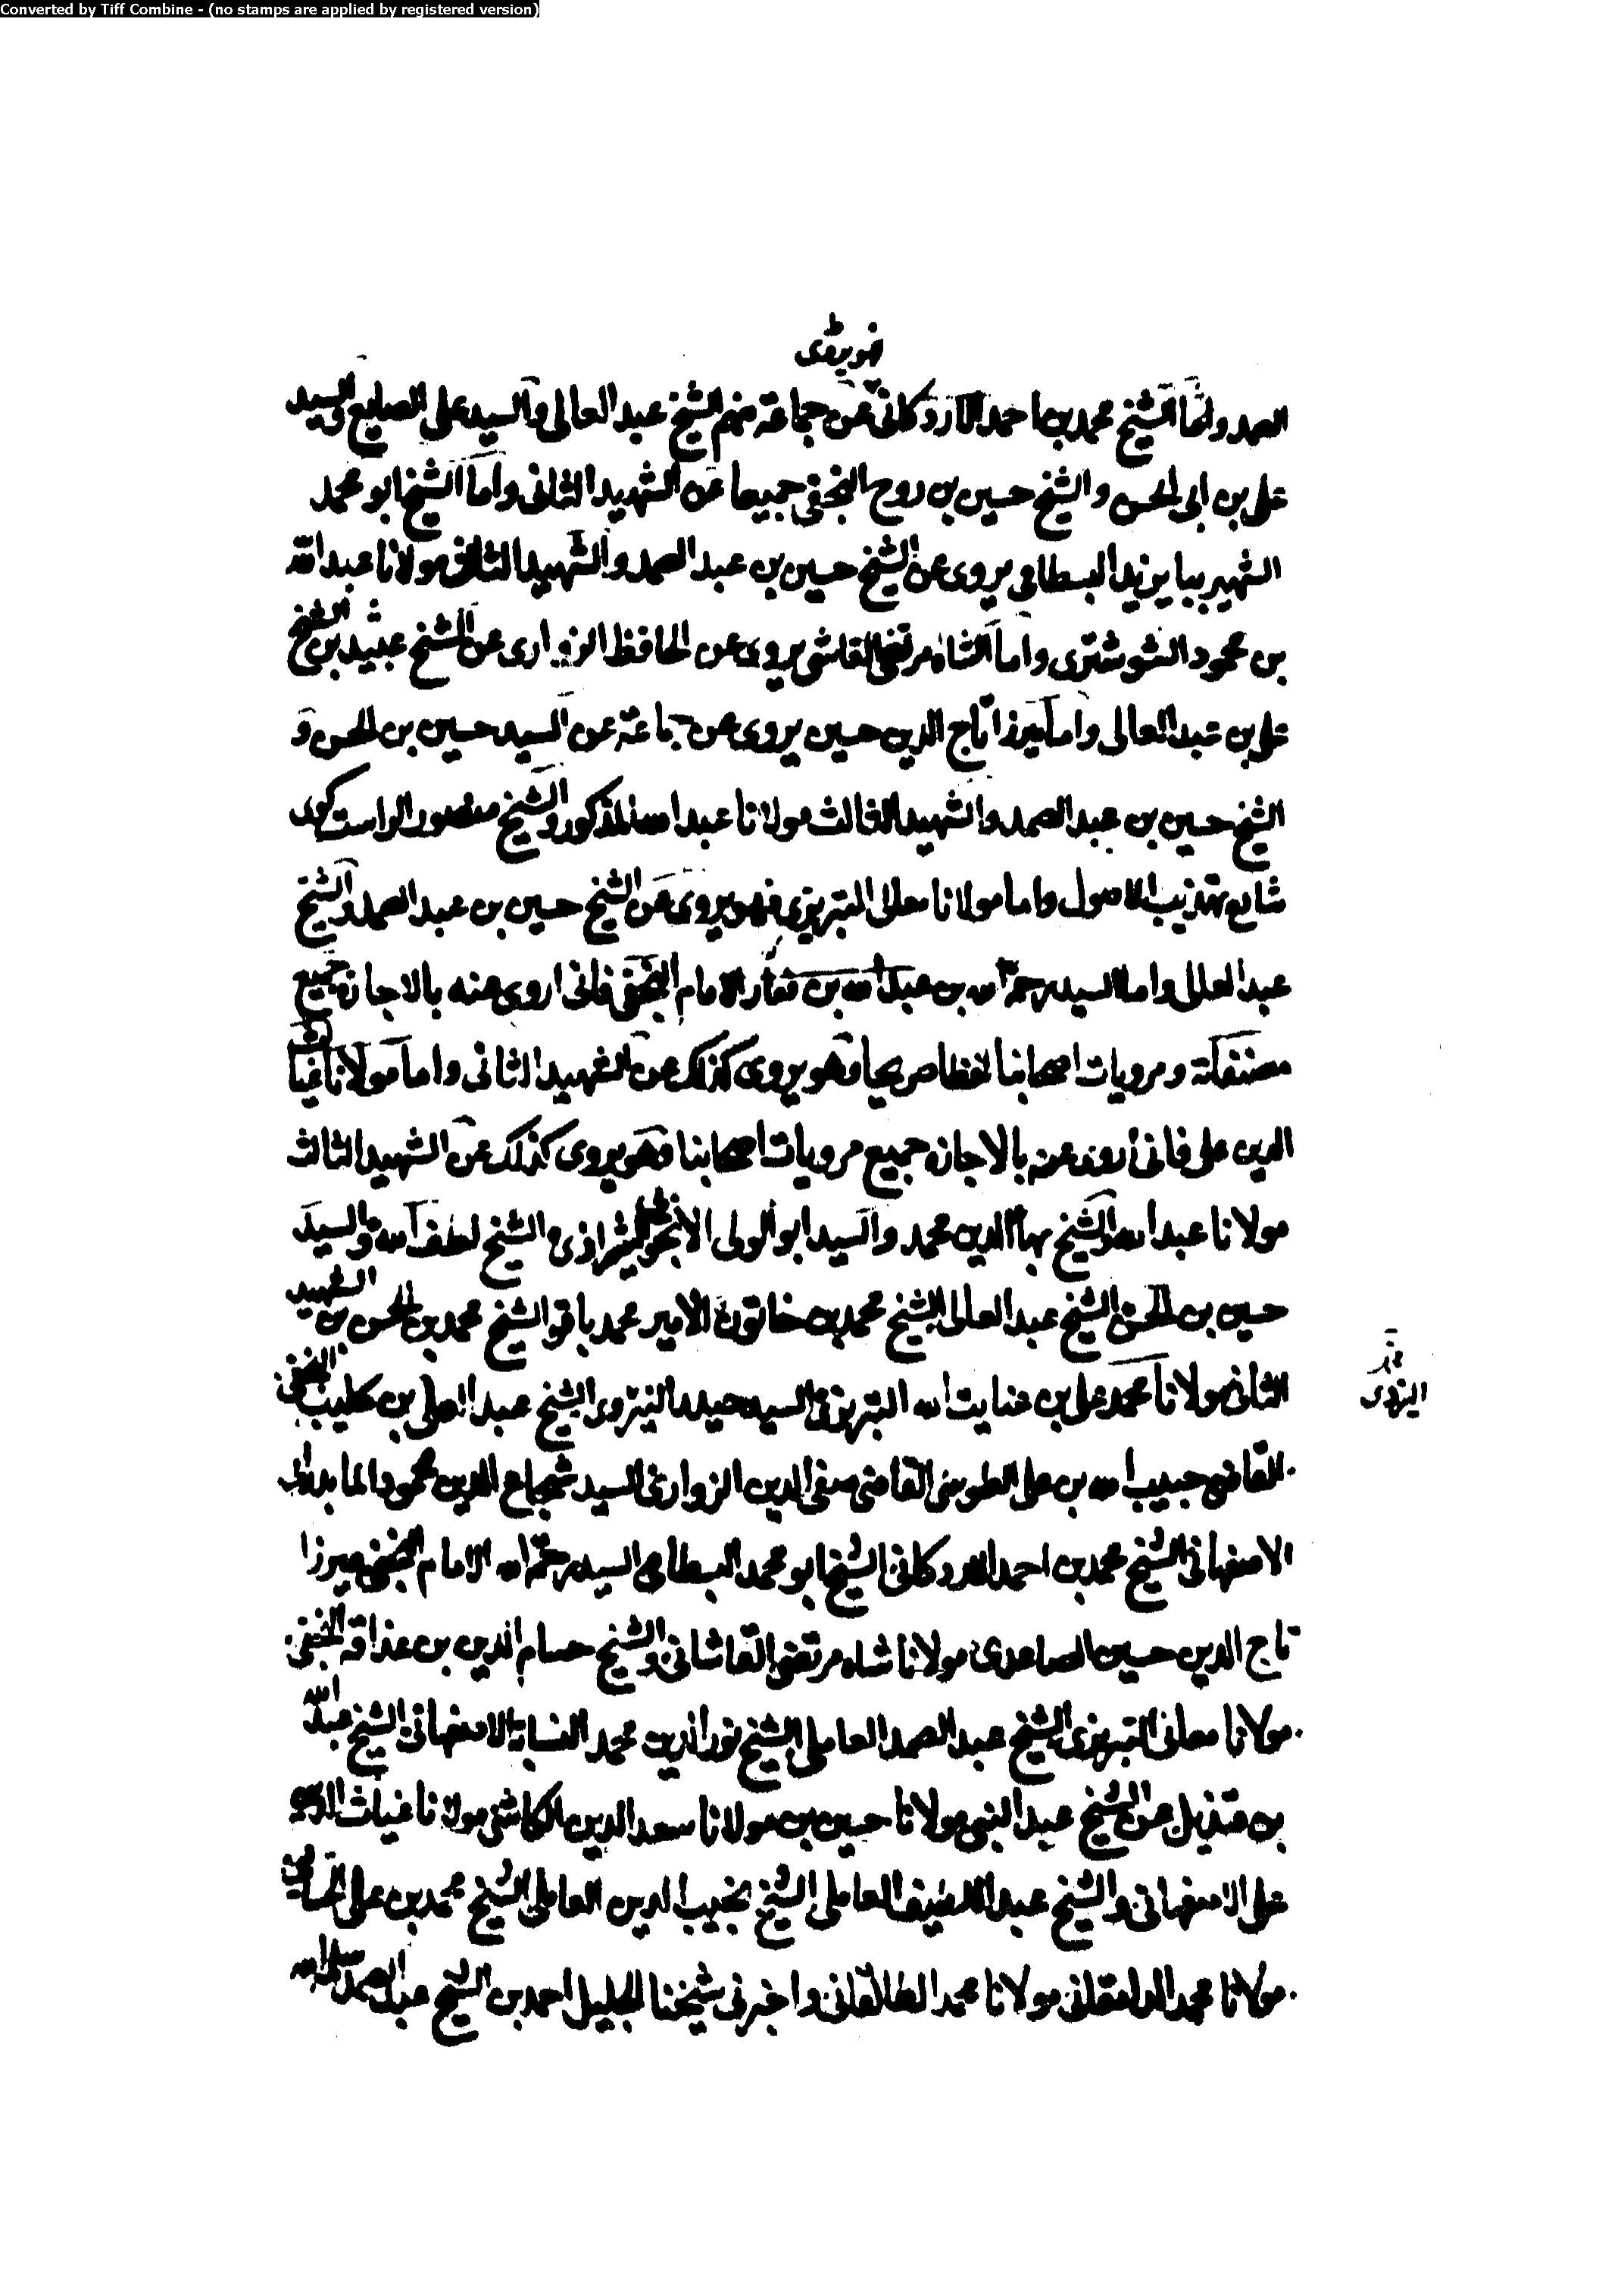 Converted by Tiff Combine - (no stamps are applied by registered version)
فهو يروى
الصمد واما الشيخ محمد بن احمد الاردكانى عن جماعة منهم الشيخ عبد العالى والسيد على الصايغ والسيد
على بن ابى الحسن والشيخ حسين بن روح النجفى جميعا عن الشهيد الثانى واما الشيخ ابو محمد
الشهير ببايزيد البسطامى يروى عن الشيخ حسين بن عبد الصمد والشهيد الثالث مولانا عبد الله
بن محمود الشوشترى واما الشاه مرتضى القاشى يروى عن الحافظ الزوارى عن الشيخ بن الشيخ
على بن عبد العالى واما ميرزا تاج الدين حسين يروى عن جماعة عن السيد حسين بن الحسن و
الشيخ حسين بن عبد الصمد والشهيد الثالث مولانا عبد الله المذكور والشيخ منصور الراست كوى
شارح تهذيب الاصول واما مولانا معانى التبريزى فهو يروى عن الشيخ حسين بن عبد الصمد والشيخ
عبد العالى واما السيد رحمة الله بن عبد الله بن الامام النجفى فانى اروى عنه بالاجازة جميع
مصنفاته ومرويات اصحابنا لفظا صريحا وهو يروى كذلك عن الشهيد الثانى واما مولانا غياث
الدين على فانى اروى عنه بالاجازة جميع مرويات اصحابنا وهو يروى كذلك عن الشهيد الثالث
مولانا عبد الله والشيخ بهاء الدين محمد والسيد ابو الولى الانجو الشيرازى والشيخ لطف الله والسيد
حسين بن الحسن والشيخ عبد العالى الشيخ محمد بن خاتون الامير محمد باقر الشيخ محمد بن الحسن بن الشهيد
الثانى مولانا محمد على بن عنايت الله التبريزى السيد حيدر الشيخ عبد العلى بن كليب النجفى
محمد
اليزدى
القاضى حبيب الله بن على الطوسى القاضى صفى الدين الزوارى السيد شجاع الدين محمود
الاصفهانى الشيخ محمد بن احمد الاردكانى الشيخ ابو محمد البسطامى السيد رحمة الله الامام النجفى ميرزا
تاج الدين حسين الصاعدى مولانا شاه مرتضى القاشانى والشيخ حسام الدين بن عذاقة النجفى
مولانا معانى التبريزى الشيخ عبد الصمد العاملى الشيخ نور الدين محمد النسابة الاصفهانى الشيخ عبد الله
بن قنديل عن الشيخ عبد النبى مولانا حسين بن مولانا سعد الدين الكاشى مولانا غياث الدين
على الاصفهانى والشيخ عبد اللطيف العاملى الشيخ نجيب الدين العاملى الشيخ محمد بن على
مولانا محمد الدامقانى مولانا محمد الطالقانى واخبرنى شيخنا الجليل احمد بن الشيخ عبد الصمد سلمه الله